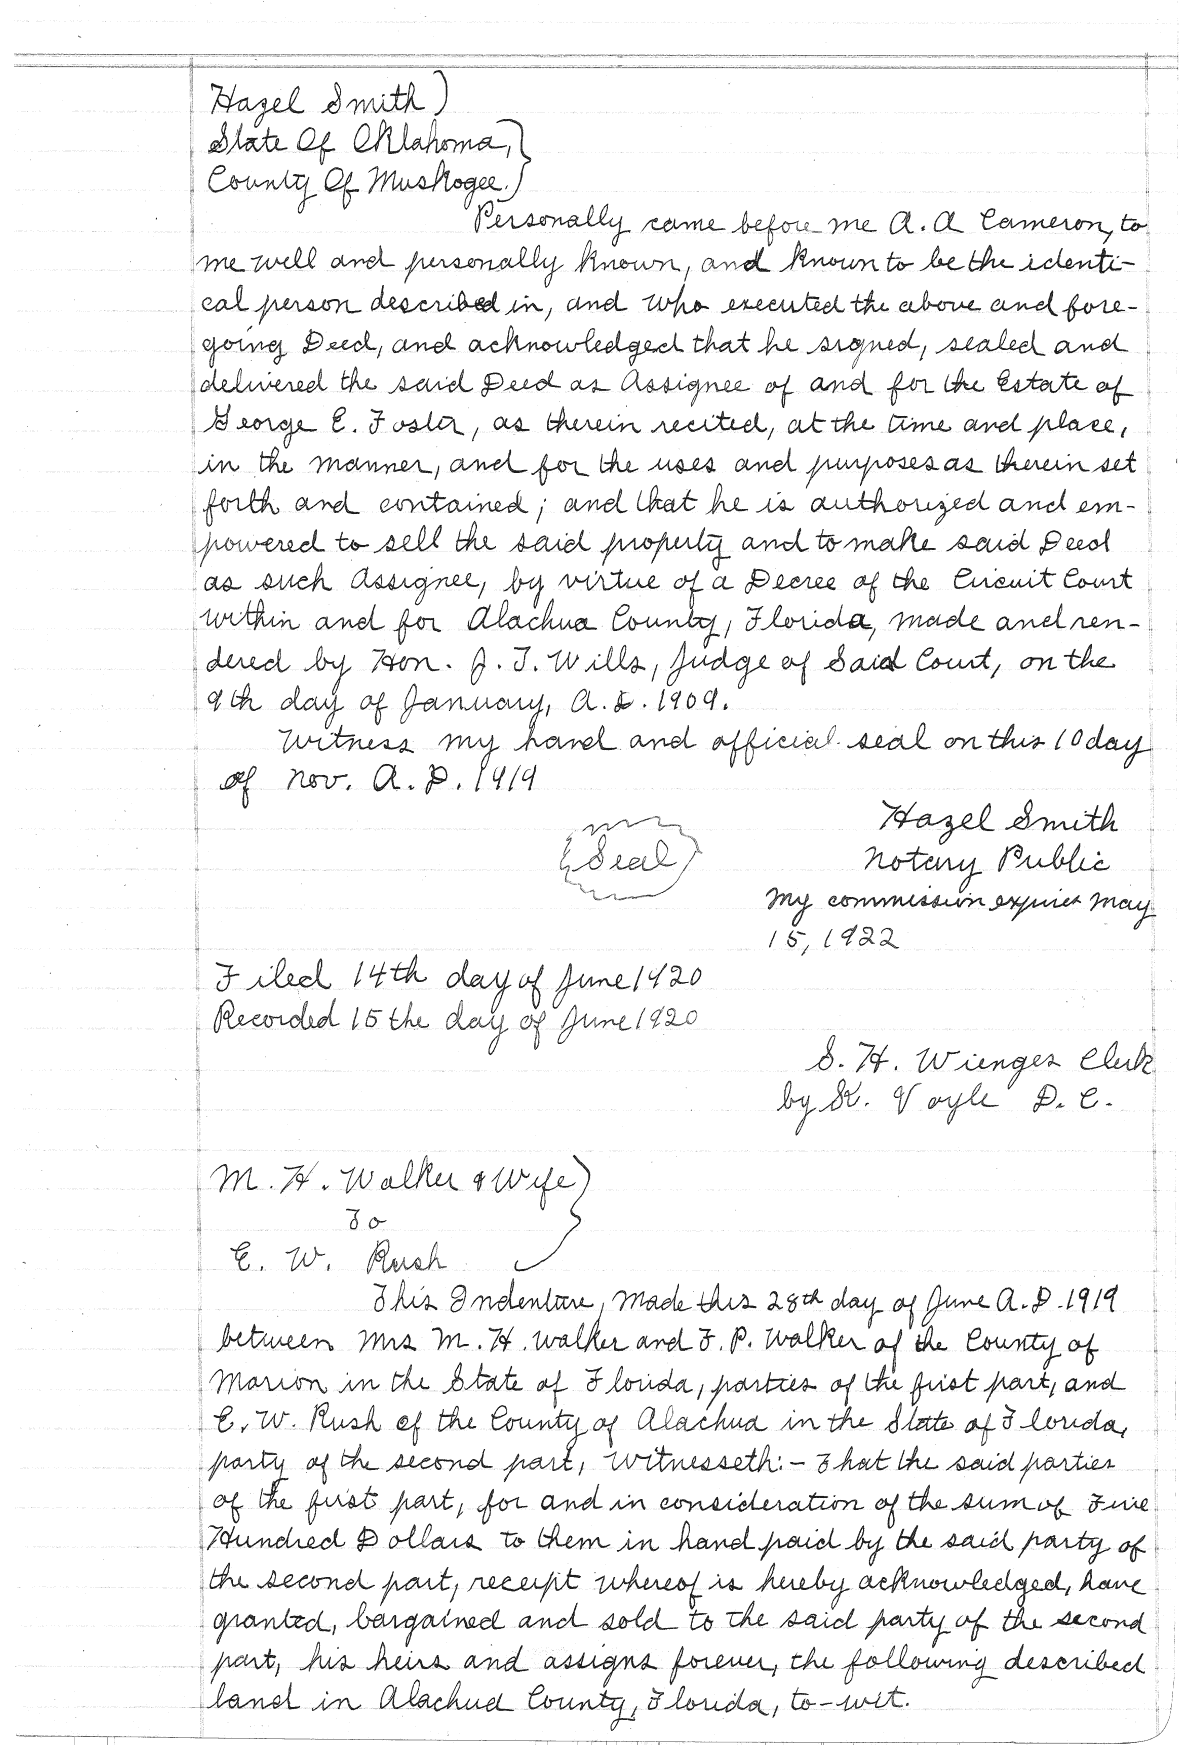 Hazel Smith)
State Of Oklahoma,}
County Of Muskogee.}
Personally came before me A. A Cameron, to
me well and personally known, and known to be the identi-
cal person described in, and who executed the above and fore-
going Deed, and acknowledged that he signed, sealed and
delivered the said Deed as Assignee of and for the Estate of
George E. Foster, as therein recited, at the time and place,
in the manner, and for the uses and purposes as therein set
forth and contained; and that he is authorized and em-
powered to sell the said property and to make said Deed
as such Assignee, by virtue of a Decree of the Circuit Court
within and for Alachua County, Florida, made and ren-
dered by Hon. J. T. Wills, Judge of Said Court, on the
9th day of January, A. D. 1909.
Witness my hand and official seal on this 10 day
of Nov. A. D. 1919
Hazel Smith
(Seal)
Notary Public
My commission expires May
15, 1922
Filed 14th day of June 1920
Recorded 15 the day of June 1920
S. H. Wienges Clerk
by K. Voyle D. C.
M. H. Walker & Wife)
To
E. W. Rush
This Indenture, Made this 28th day of June A. D. 1919
between Mrs M. H. Walker and F. P. Walker of the County of
Marion in the State of Florida, parties of the first part, and
E. W. Rush of the County of Alachua in the State of Florida,
party of the second part, Witnesseth:- That the said parties
of the first part, for and in consideration of the sum of Five
Hundred Dollars to them in hand paid by the said party of
the second part, receipt whereof is hereby acknowledged, have
granted, bargained and sold to the said party of the second
part, his heirs and assigns forever, the following described
land in Alachua County, Florida, to-wit.